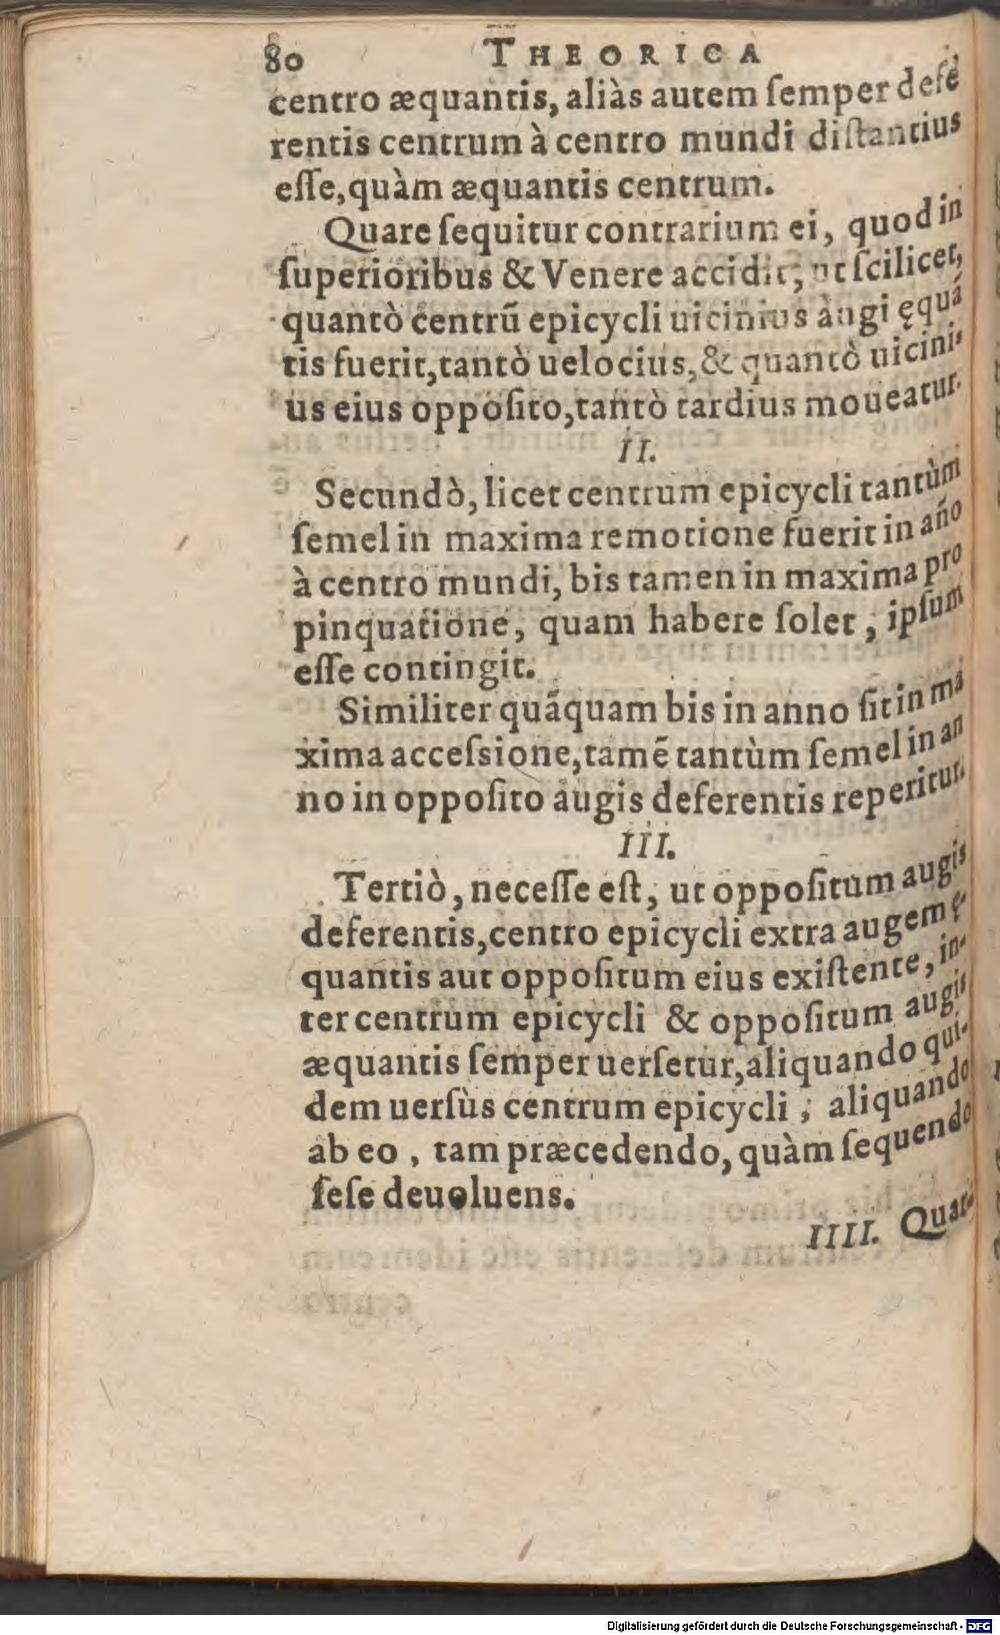 80 THEORICA
centro æquantis, aliàs autem ſemper defe
rentis centrum à centro mundi diſtantius
eſſe, quàm æquantis centrum.
Quare ſequitur contrarium ei, quod in
ſuperioribus & Venere accidit, ut ſcilicet,
quantò centrũ epicycli uicinius augi ęquã
tis fuerit, tantò uelocius, & quantò uicini-
us eius oppoſito, tantò tardius moueatur.
II.
Secundò, licet centrum epicycli tantùm
ſemel in maxima remotione fuerit in año
à centro mundi, bis tamen in maxima pro
pinquatione, quam habere ſolet, ipſum
eſſe contingit.
Similiter quãquam bis in anno ſit in ma
xima acceſsione, tamẽ tantùm ſemel in an
no in oppoſito augis deferentis reperitur.
III.
Tertiò, neceſſe eſt, ut oppoſitum augis
deferentis, centro epicycli extra augem ę-
quantis aut oppoſitum eius exiſtente, in-
ter centrum epicycli & oppoſitum augis
æquantis ſemper uerſetur, aliquando qui-
dem uerſùs centrum epicycli, aliquando
ab eo, tam præcedendo, quàm ſequendo
ſeſe deuoluens.
IIII. Quar-
Digitalisierung gefördert durch die Deutsche Forschungsgemeinschaft - DFG